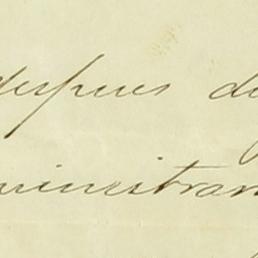 despues de
ministran